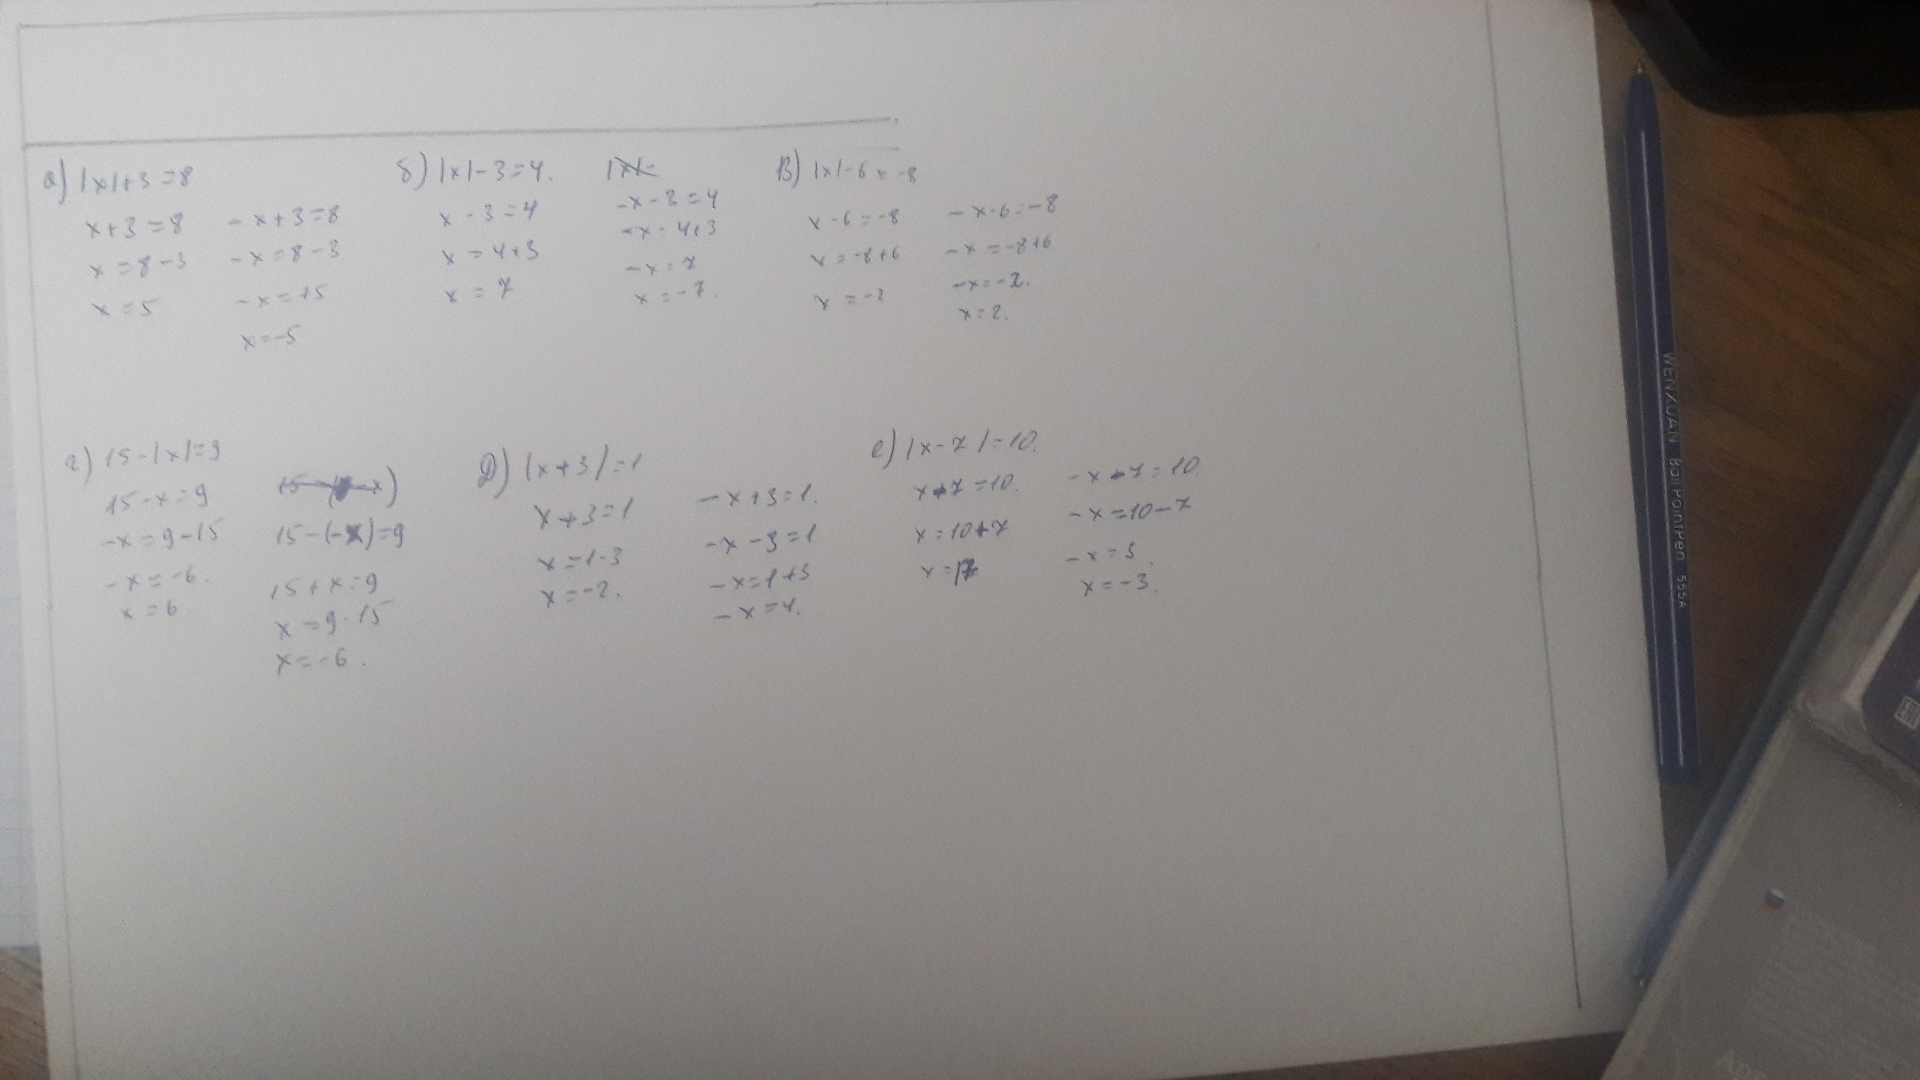 а) |x|+3=8
x+3=8
x=8-3
x=5
-x+3=8
-x=8-3
-x=+5
x=-5
б) |x|-3=4.
x-3=4
x=4+3
x=7
-x-3=4
-x=4+3
-x=7
x=-7.
В) |x|-6=-8
x-6=-8
x=-8+6
x=-2
-x-6=-8
-x=-8+6
-x=-2.
x=2.
г) 15-|x|=9
15-x=9
-x=9-15
-x=-6.
x=6.
15-(-x)=9
15+x=9
x=9-15
x=-6.
Д) |x+3|=1
x+3=1
x=1-3
x=-2.
-x+3=1.
-x-3=1
-x=1+3
-x=4.
е) |x-7|=10.
x-7=10.
x=10+7
x=17
-x+7=10.
-x=10-7
-x=3.
x=-3.
WENXUAN Ball Point Pen 555A